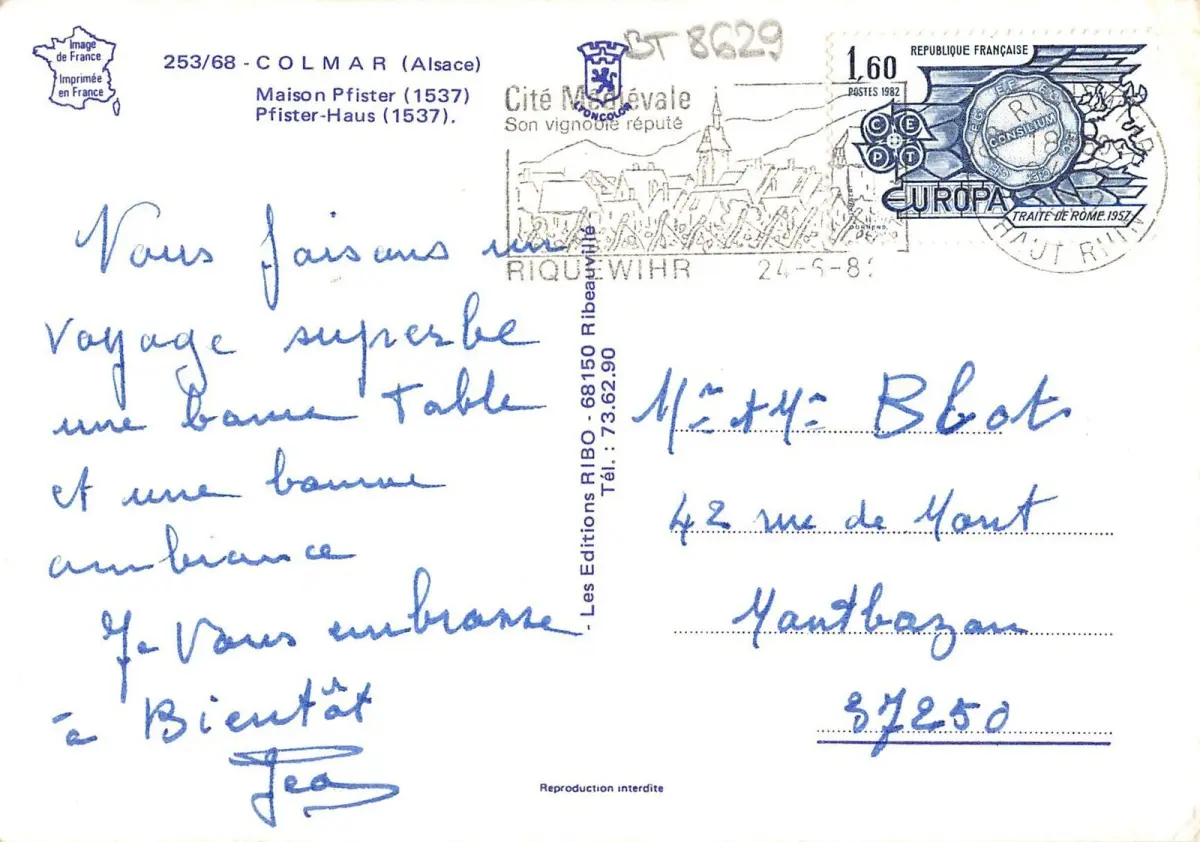 Image
de France
Imprimée
en France
253/68 - COLMAR (Alsace)
Maison Pfister (1537)
Pfister-Haus (1537).
BT 8629
LYONCOLOR
Cité Médiévale
Son vignoble réputé
RIQUEWIHR 24-6-82
1,60
POSTES 1982
REPUBLIQUE FRANÇAISE
CEPT
CONSILIUM
EUROPA
TRAITÉ DE ROME. 1957
HAUT RHIN
Vous faisons un
voyage superbe
une bonne Table
et une bonne
ambiance
Je Vous embrasse
à Bientôt
- Les Editions RIBO - 68150 Ribeauvillé
Tél. : 73.62.90
Mr et Me Blot
42 rue de Mont
Montbazon
37250
Reproduction interdite